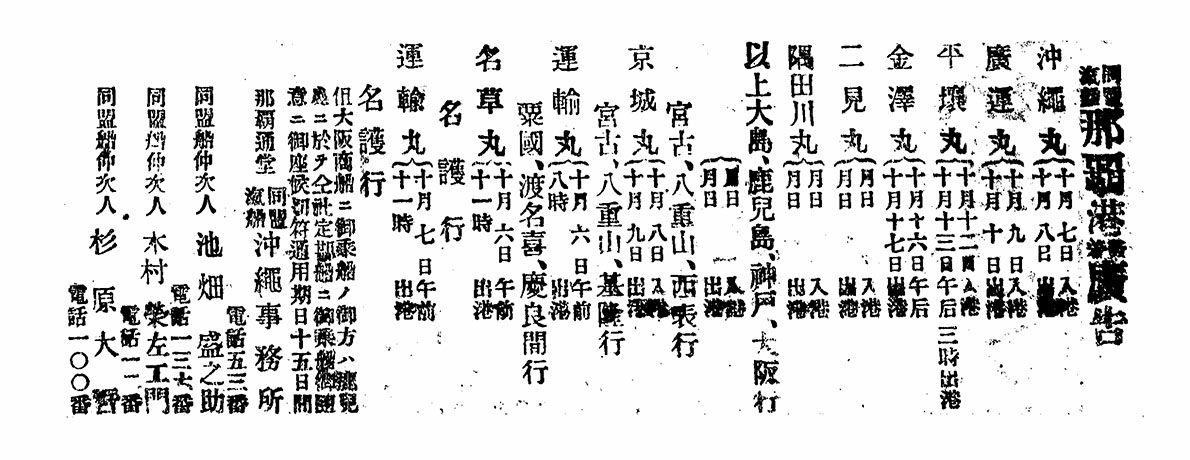 同盟汽船 那覇港 發着 廣告
沖繩丸 十月七日入港 十月八日出港
廣運丸 十月九日入港 十月十日出港
平壤丸 十月十二日入港 十月十三日午后三時出港
金澤丸 十月十六日午后 十月十七日出港
二見丸 月日入港 月日出港
隅田川丸 月日入港 月日出港
以上大島、鹿兒島、神戸、大阪行
月日入港 月日出港
宮古、八重山、西表行
京城丸 十月八日入港 十月九日出港
宮古、八重山、基隆行
運輸丸 十月六日午前八時出港
粟國、渡名喜、慶良間行
名草丸 十月六日午前十一時出港
名護行
運輸丸 十月七日午前十一時出港
名護行
但大阪商船ニ御乘船ノ御方ハ鹿兒
島ニ於テ仝社定期船ニ御乘船御隨
意ニ御座候切符通用期日十五日間
那覇通堂 同盟汽船 沖繩事務所
電話五三番
同盟船仲次人 池畑盛之助
電話一三六番
同盟船仲次人 木村榮左工門
電話一一番
同盟船仲次人 杉原大
電話一〇〇番